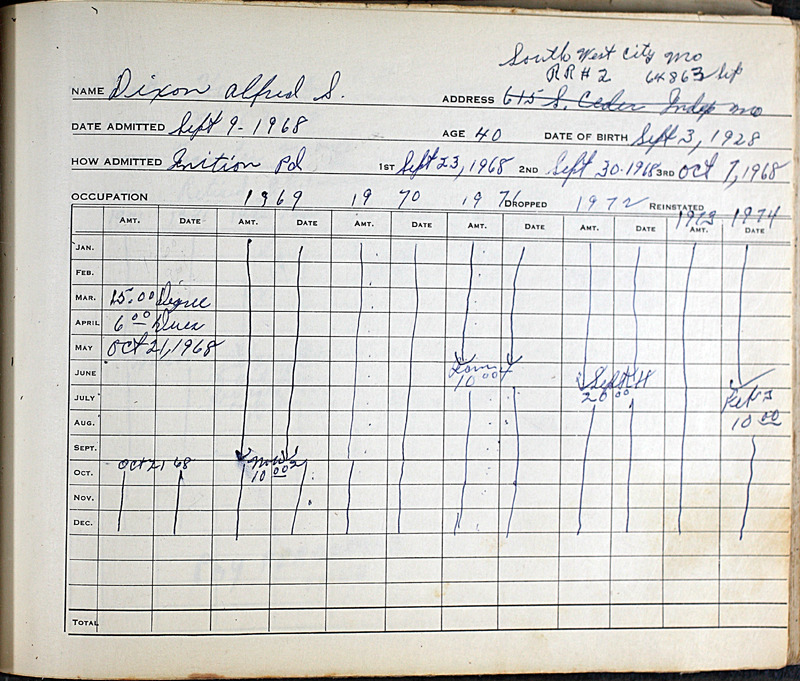 South West City Mo
RR#2 64863 Zip
NAME Dixon Alfred S. ADDRESS 615 S. Ceder Indep Mo
DATE ADMITTED Sept 9-1968 AGE 40 DATE OF BIRTH Sept 3, 1928
HOW ADMITTED Inition Pd 1ST Sept 23, 1968 2ND Sept 30-1968 3RD Oct 7, 1968
OCCUPATION 1969 1970 1971 DROPPED 1972 REINSTATED 1973 1974
AMT. DATE AMT. DATE AMT. DATE AMT. DATE AMT. DATE AMT. DATE
JAN.
FEB.
MAR. 15.00 Degree
APRIL 6 00 Dues
MAY Oct 21, 1968
JUNE 10 00 Sept
JULY 20 00
AUG. 10 00
SEPT.
OCT. Oct 21 68 10 00
NOV.
DEC.
TOTAL